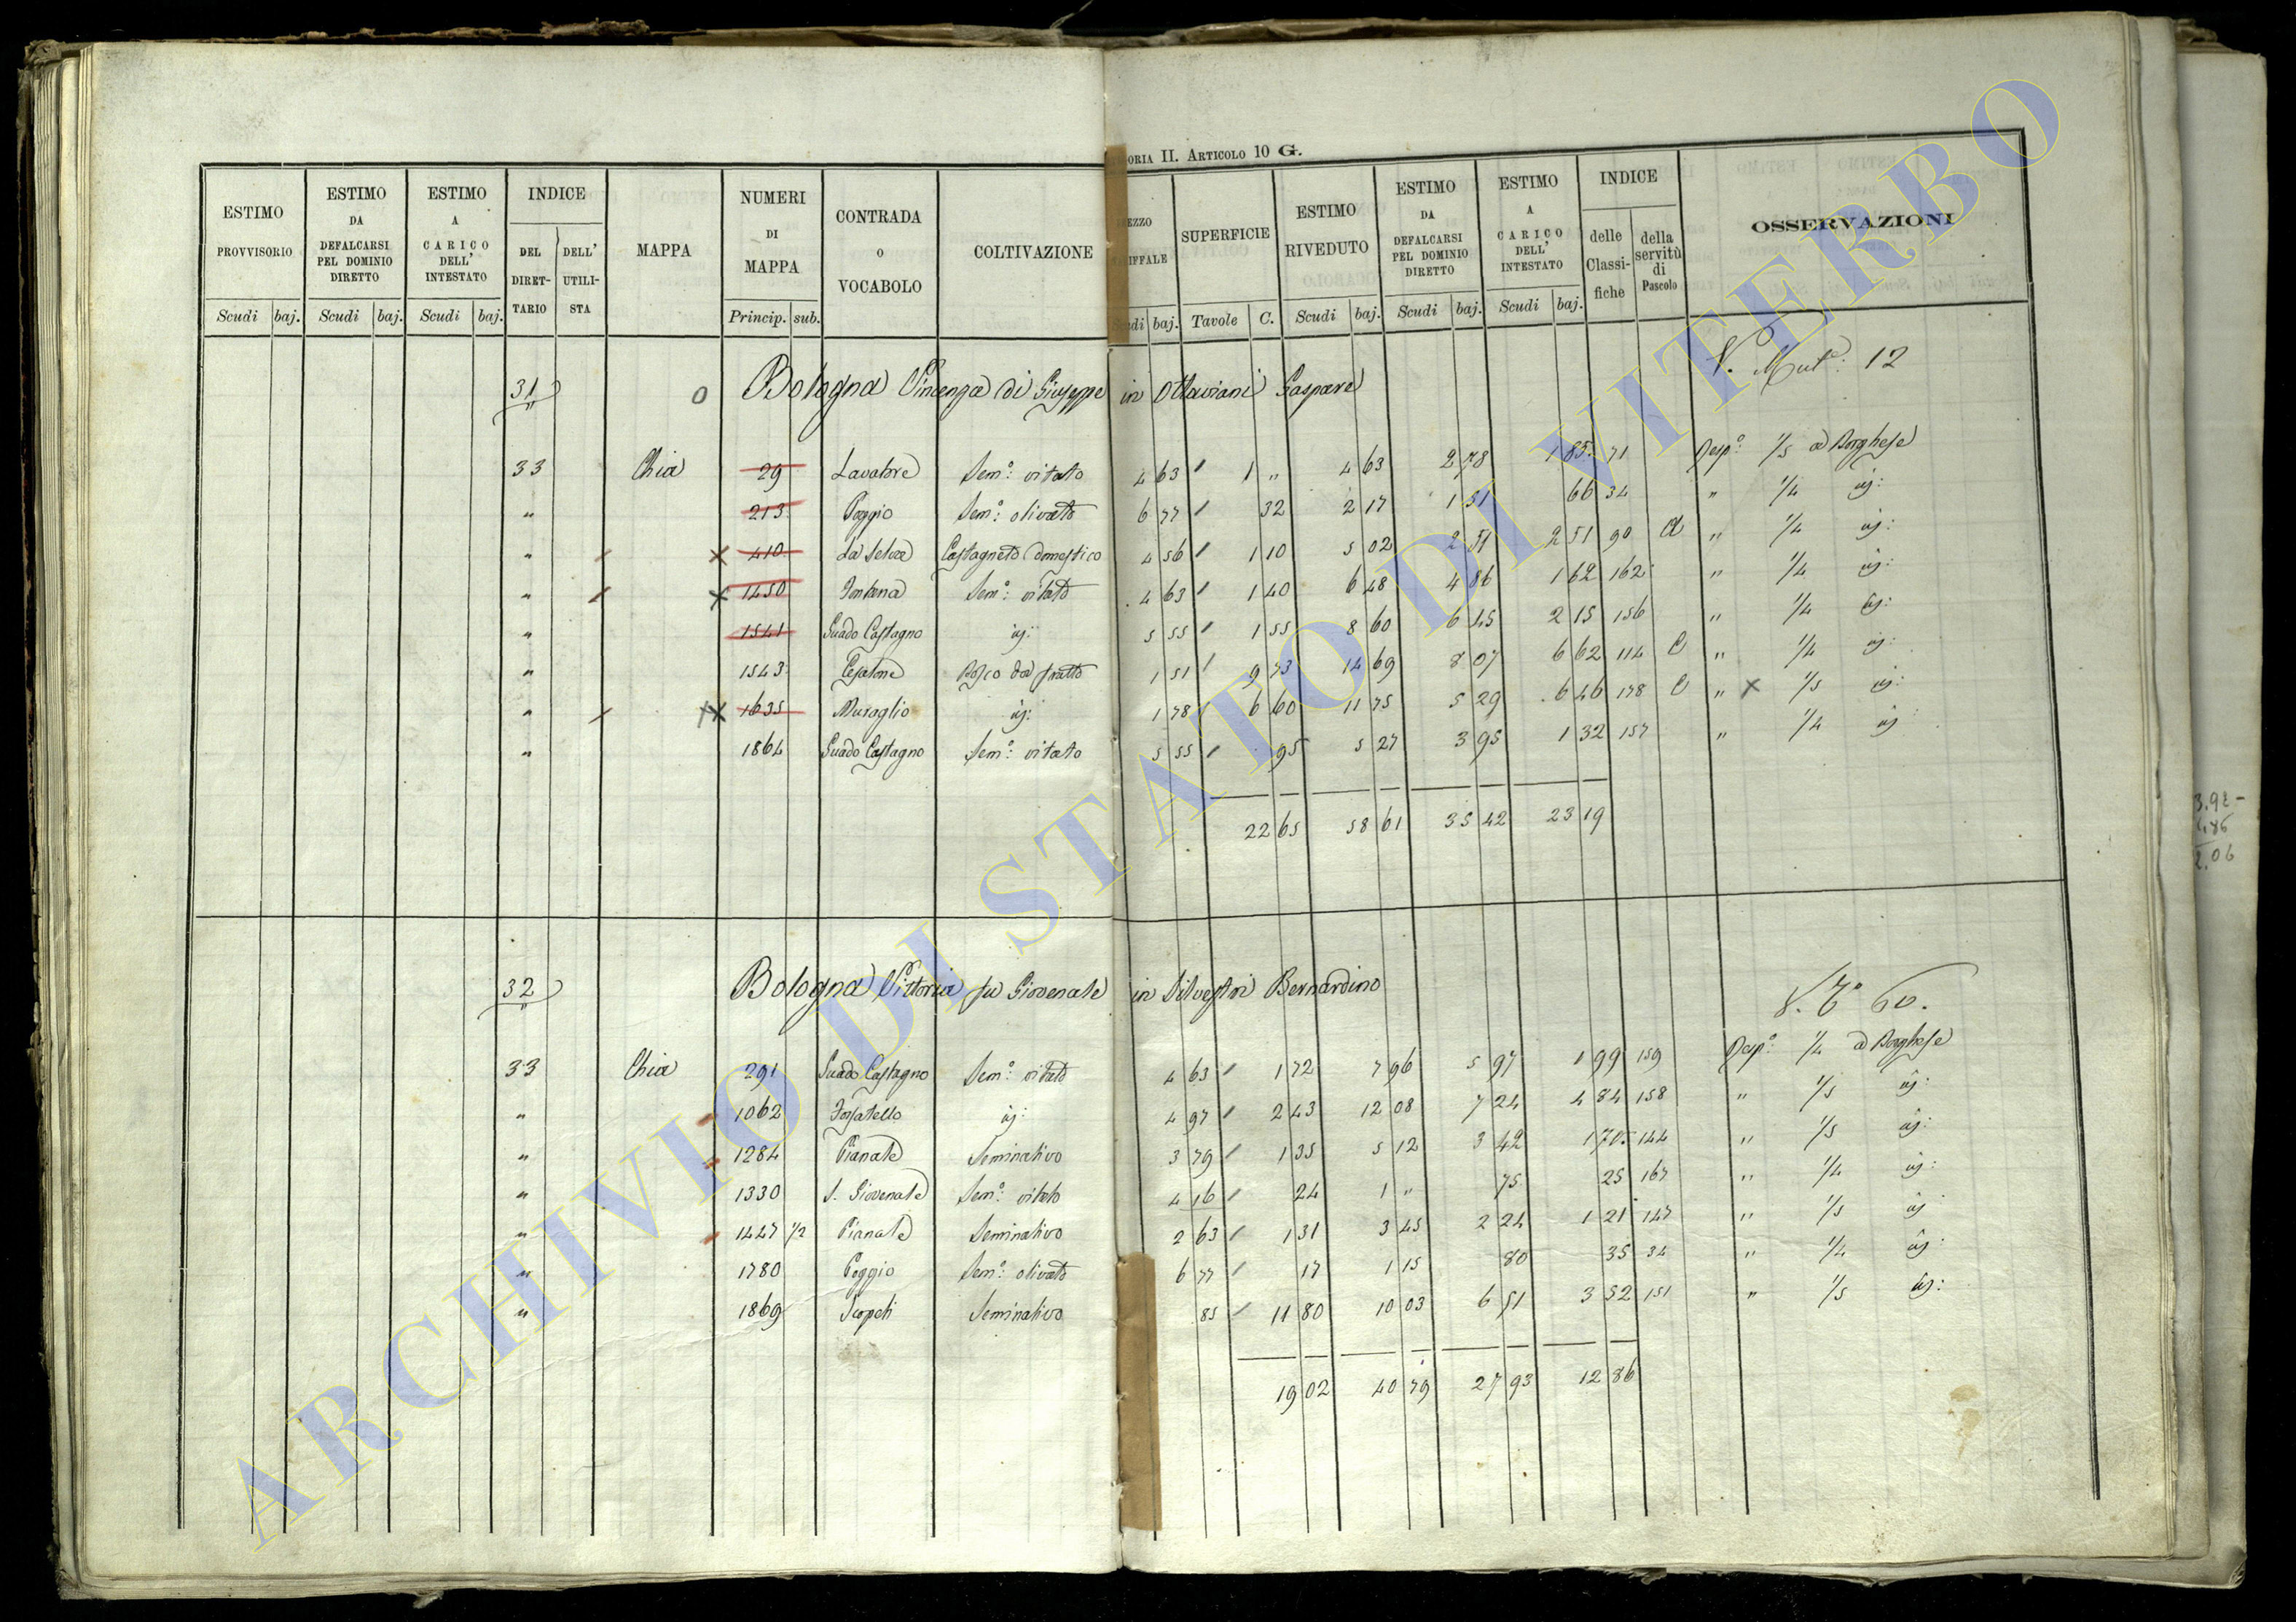 ORIA II. ARTICOLO 10 G.
ESTIMO PROVVISORIO | ESTIMO DA DEFALCARSI PEL DOMINIO DIRETTO | ESTIMO A CARICO DELL' INTESTATO | INDICE DEL DIRETTARIO | DELL' UTILISTA | MAPPA | NUMERI DI MAPPA | CONTRADA O VOCABOLO | COLTIVAZIONE | EZZO IFFALE | SUPERFICIE | ESTIMO RIVEDUTO | ESTIMO DA DEFALCARSI PEL DOMINIO DIRETTO | ESTIMO A CARICO DELL' INTESTATO | INDICE delle Classifiche | della servitù di Pascolo | OSSERVAZIONI
Scudi baj. Scudi baj. Scudi baj. Princip. sub. Scudi baj. Tavole C. Scudi baj. Scudi baj. Scudi baj.
31 O Bologna Vincenza di Giuseppe in Ottaviani Gaspare V. Mut.e: 12
33 Chia 29 Lavatore Sem.o: vitato 4 63 1 " 4 63 2 78 1 85 71 Risp.o: 1/5 a Borghese
" 213 Poggio Sem.o: olivato 6 77 32 2 17 1 51 66 34 " 1/4 iij:
" X 410 La Selva Castagneto domestico 4 56 1 10 5 02 2 51 2 51 90 a " 1/4 iij:
" X 1450 Fontana Sem.o: vitato 4 63 1 40 6 48 4 86 1 62 162 " 1/4 iij:
" 1541 Guado Castagno iij: 5 55 1 55 8 60 6 45 2 15 156 " 1/4 iij:
" 1543 Cesatone Bosco da frutto 1 51 9 73 14 69 8 07 6 62 114 C " 1/4 iij:
" X 1635 Muraglio iij: 1 78 6 60 11 75 5 29 6 46 178 C " X 1/5 iij:
" 1864 Guado Castagno Sem.o: vitato 5 55 95 5 27 3 95 1 32 157 " 1/4 iij
22 65 58 61 35 42 23 19
3.92 -
1.86
2.06
32 Bologna Vittoria fu Giovenale in Silvestri Bernardino V. T.o 60.
33 Chia 291 Guado Castagno Sem.o: vitato 4 63 1 72 7 96 5 97 1 99 159 Risp.o: 1/4 a Borghese
" 1062 Fossatello iij: 4 97 2 43 12 08 7 24 4 84 158 " 1/5 iij:
" 1284 Pianate Seminativo 3 79 1 35 5 12 3 42 1 70 144 " 1/5 iij:
" 1330 S. Giovenale Sem.o: vitato 4 16 24 1 " 75 25 167 " 1/4 iij:
" 1447 1/2 Pianate Seminativo 2 63 1 31 3 45 2 24 1 21 147 " 1/5 iij
" 1780 Poggio Sem.o: olivato 6 77 17 1 15 80 35 34 " 1/4 iij:
" 1869 Scopeti Seminativo 85 11 80 10 03 6 51 3 52 151 " 1/5 iij:
19 02 40 79 27 93 12 86
ARCHIVIO DI STATO DI VITERBO